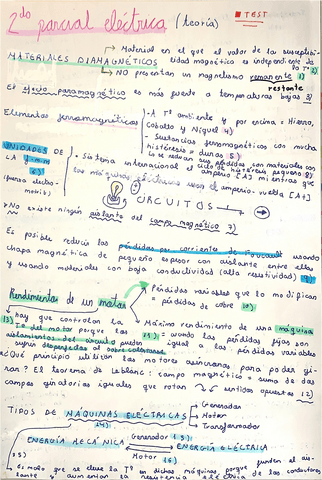 2do parcial eléctrica (teoría)
■ TEST
Material en el que el valor de la suscepti-
MATERIALES DIAMAGNÉTICOS
bilidad magnética es independiente de
la Tª 1)
NO presentan un magnetismo remanente 2)
restante
El efecto paramagnético es más fuerte a temperaturas bajas 3)
Elementos ferromagnéticos
A Tª ambiente y por encima: Hierro,
Cobalto y Níquel 4)
Sustancias ferromagnéticas con mucha
histéresis → duras 5)
UNIDADES DE
LA f.m.m
6)
(fuerza magneto-
motriz)
Sistema internacional el
amperio [A] mientras que
las máquinas eléctricas usan el amperio-vuelta [A·t]
CIRCUITOS
No existe ningún aislante del campo magnético 7)
Es posible reducir las pérdidas por corrientes de Foucault usando
chapa magnética de pequeño espesor con aislante entre ellas
y usando materiales con baja conductividad (alta resistividad) 9)
Rendimientos de un motor
Pérdidas variables que lo modifican
→ pérdidas de cobre 10)
Máximo rendimiento de una máquina
11): cuando las pérdidas fijas son
igual a las pérdidas variables
13) hay que controlar la
Tª del motor porque los
aislamientos del circuito pueden
sufrir desperfectos al sobrecalentarse
¿Qué principio utilizan los motores asíncronos para poder gi-
rar? El teorema de Leblanc: campo magnético = suma de dos
campos giratorios iguales que rotan sentidos opuestos 12)
TIPOS DE MÁQUINAS ELÉCTRICAS
14)
Generador
Motor
Transformador
ENERGÍA MECÁNICA
Generador 15)
Motor 16)
ENERGÍA ELÉCTRICA
Es malo que se eleve la Tª en dichas máquinas porque
pierden el ais-
tante y aumentan la resistencia eléctrica de los conductores